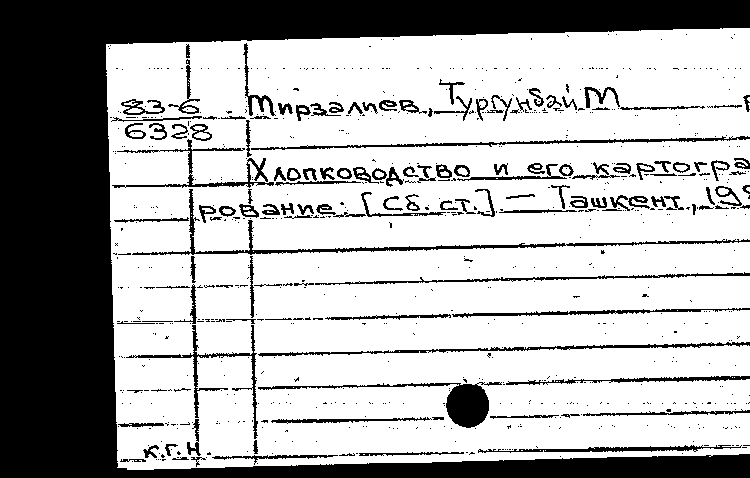 83-6 Мирзалиев, Тургунбай М
6328
Хлопководство и его картогра
рование: [Сб. ст.] — Ташкент, 198
к.г.н.